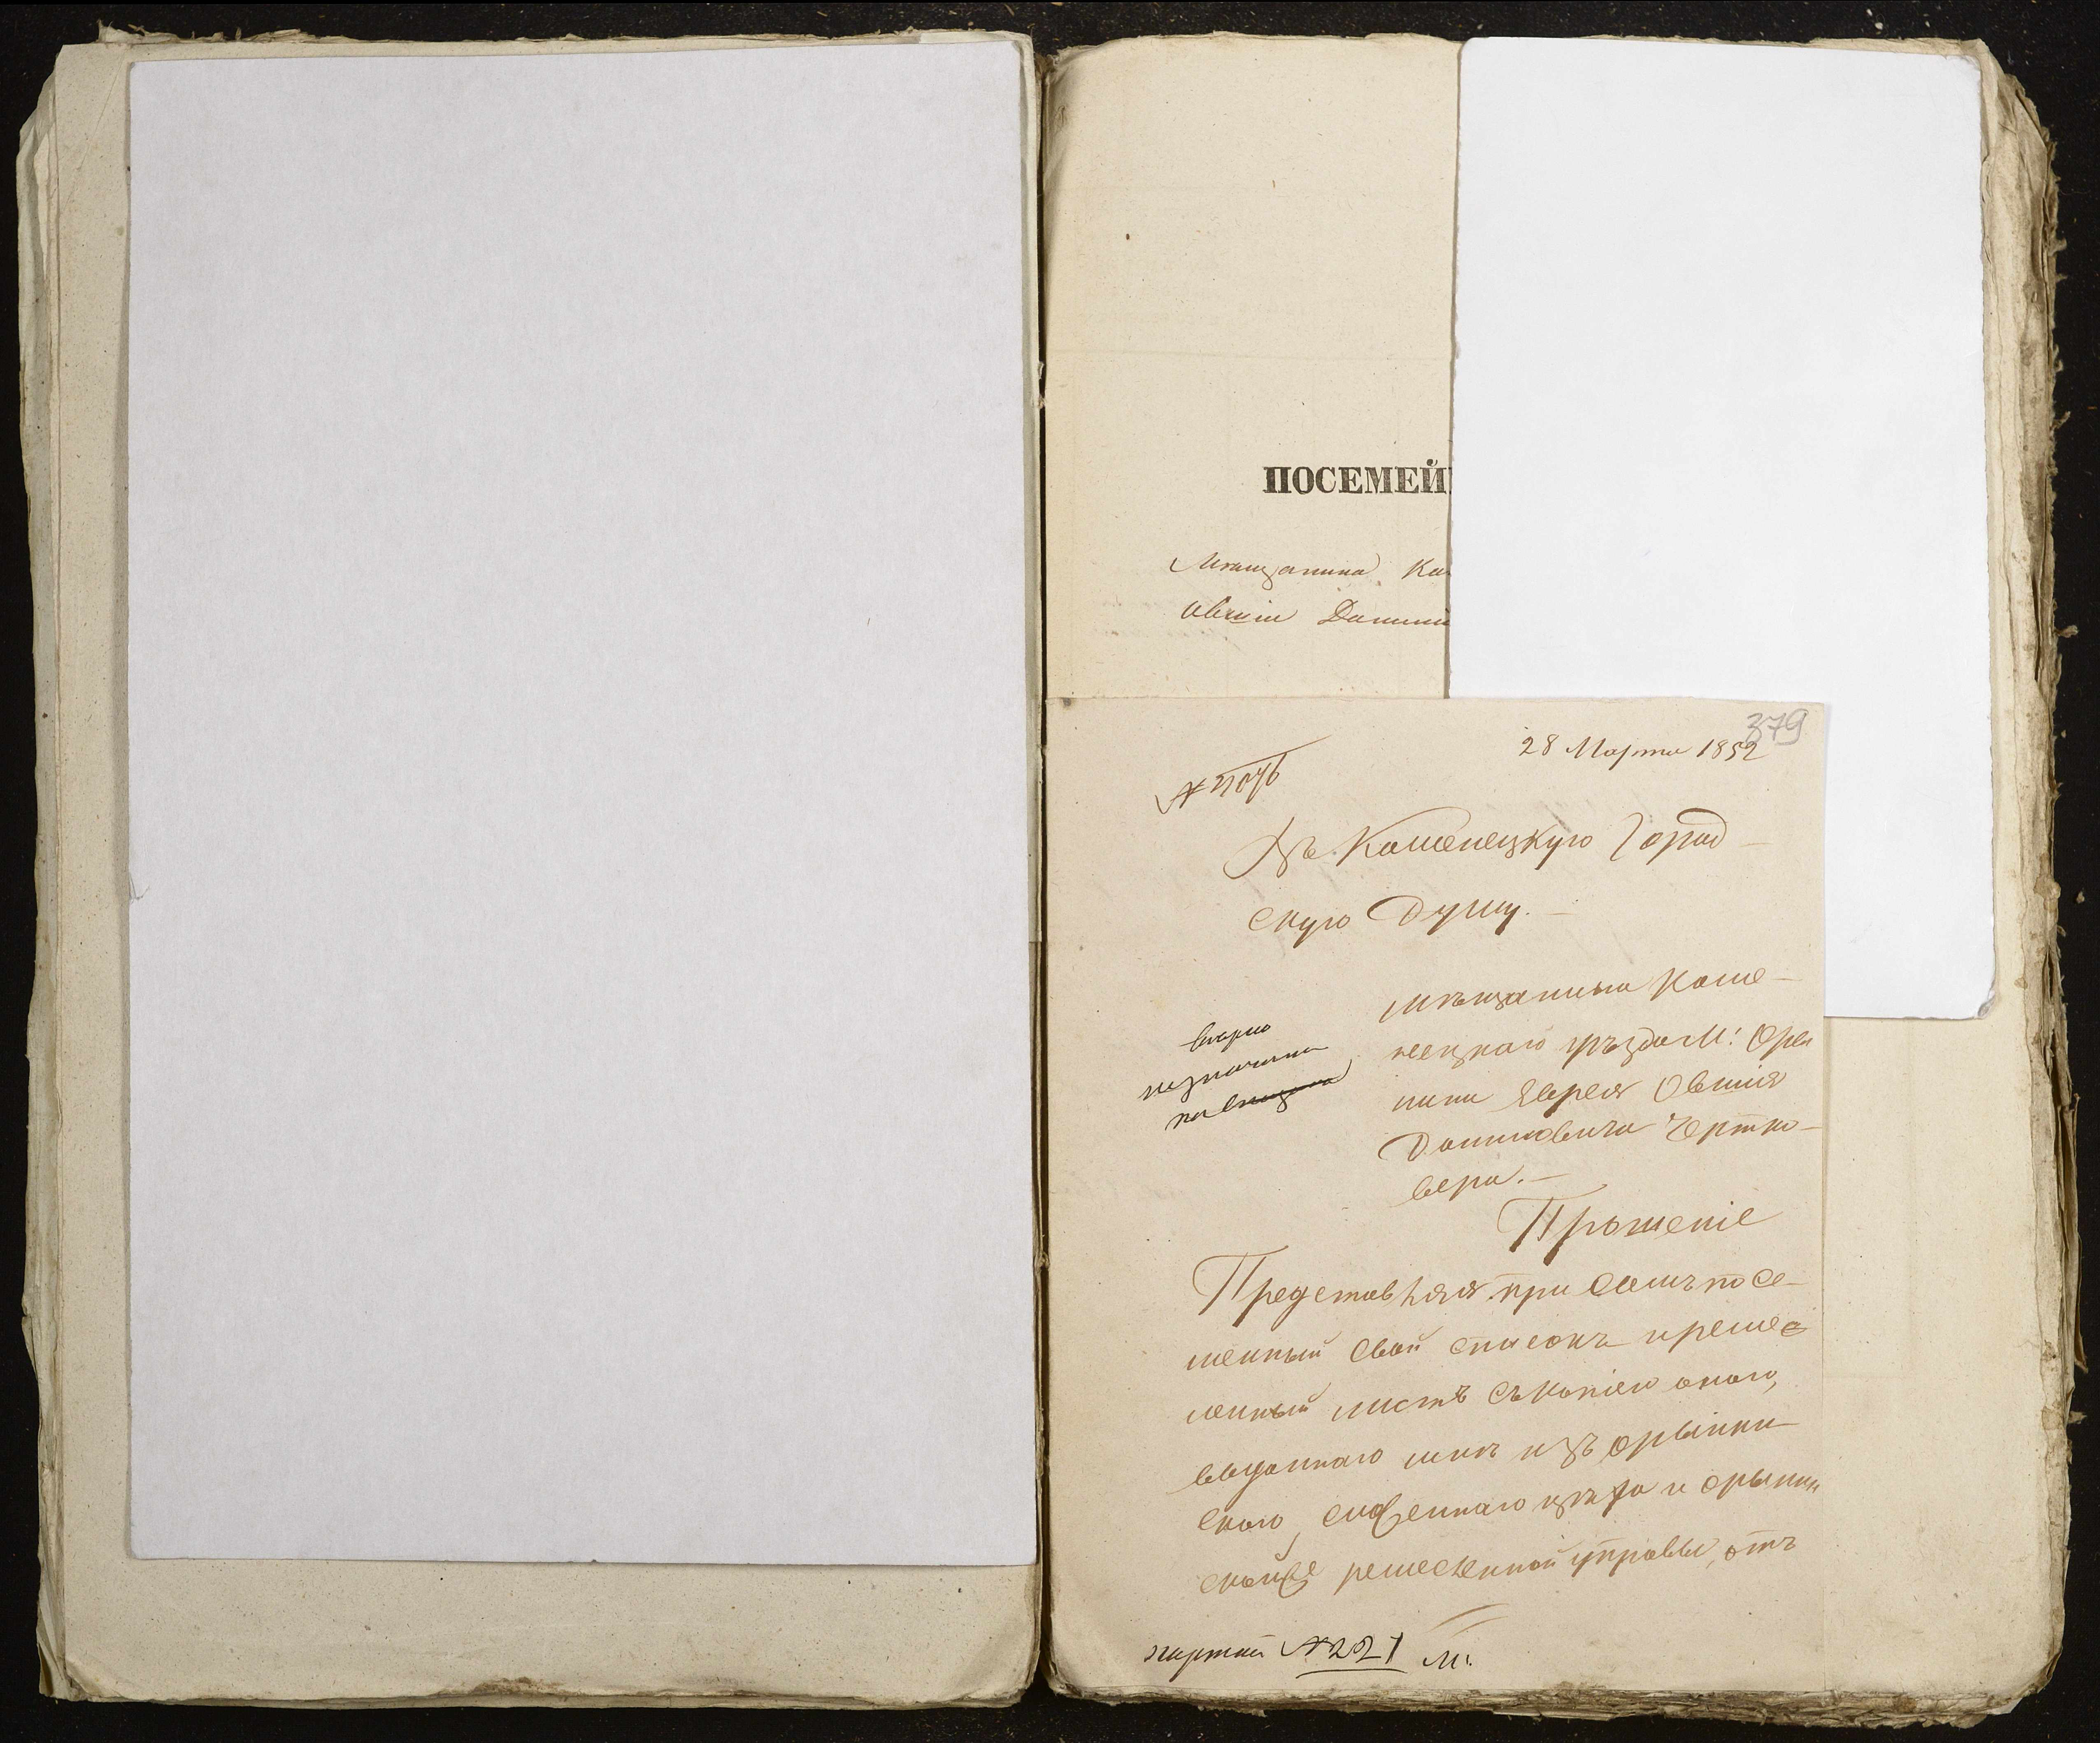 ПОСЕМЕЙ
Мѣщанина Ка
Овшія Данил
379
28 Марта 1852
Въ Каменецкую Город–
скую Думу.–
Мѣщанина Каме–
нецкаго уѣзда М: Оры
нина Еврея Овшія
Даниловича Чертко–
вера.–
Прошеніе
Представляя при семъ посе–
мейный свой списокъ и ремес
ленный листъ съ копіею онаго,
выданнаго мнѣ изъ Орынин
скаго, цѣха и Орынин
ской ремесленной управы, отъ
партія №221 М: